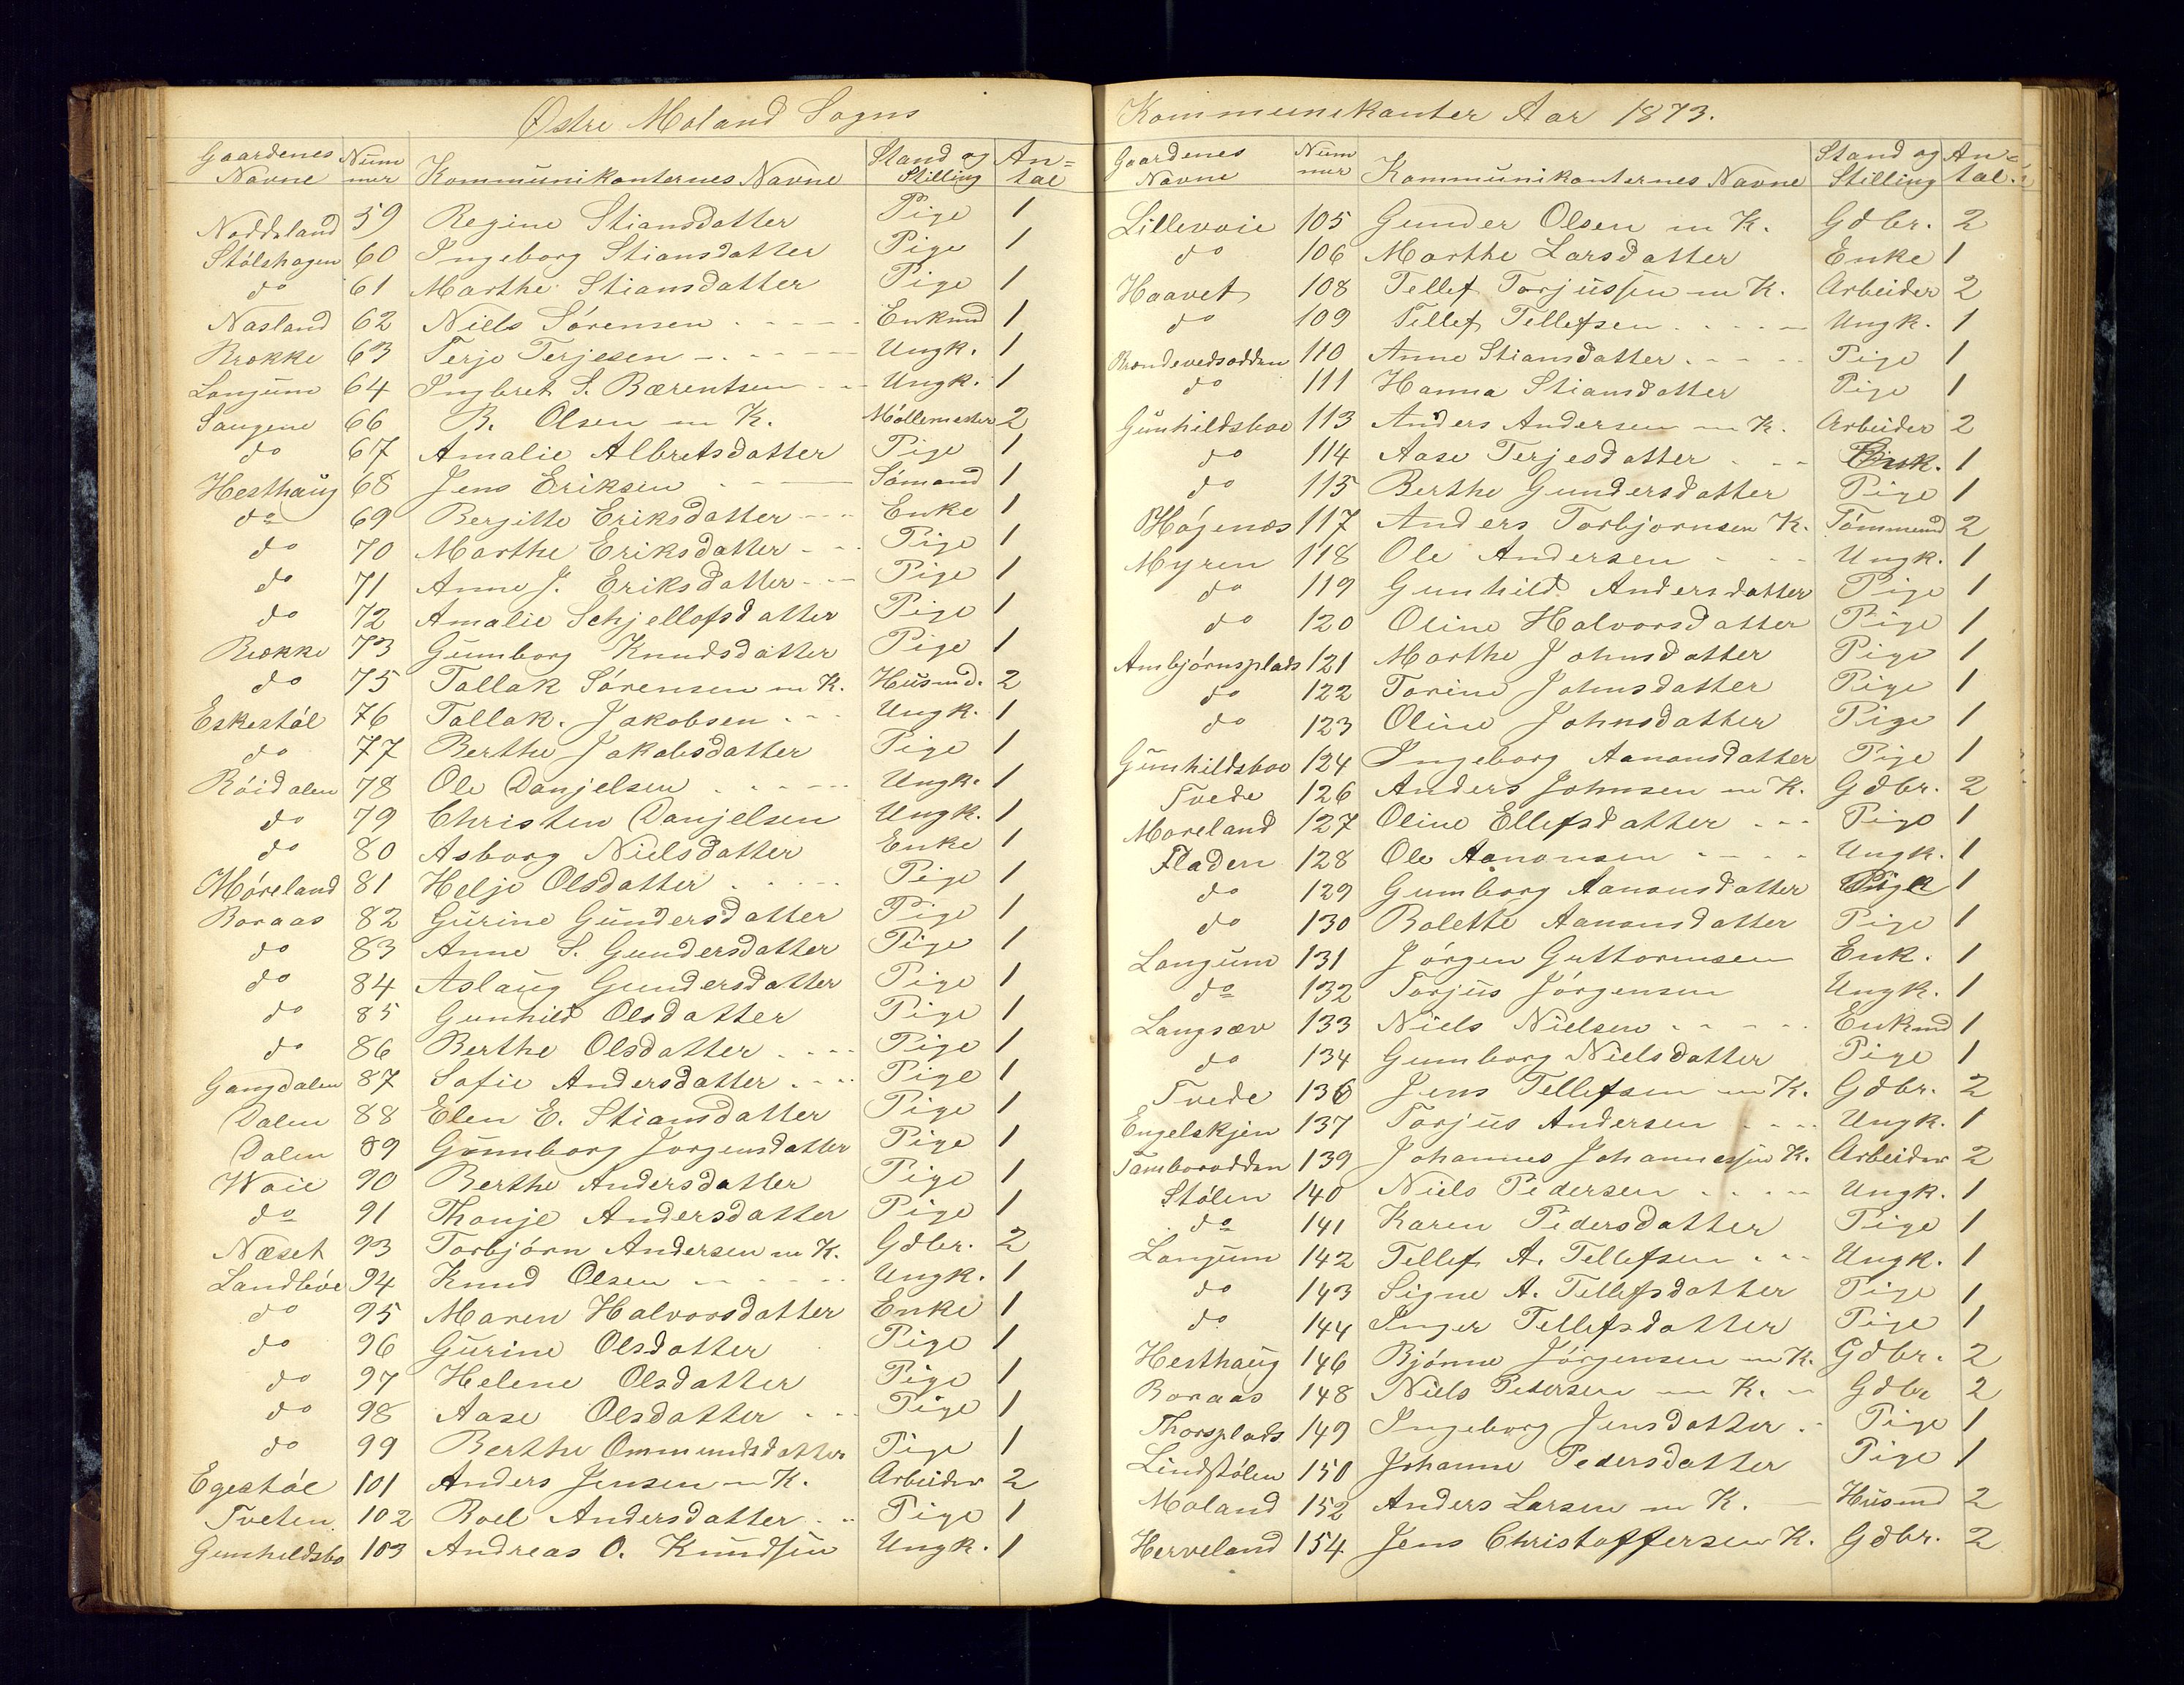 Østre Moland Sogns
Gaardenes Navne Num mer Kommunikanternes Navne Stand og Stilling An= tal
Noddeland 59 Regine Stiansdatter Pige 1
Stólshagen 60 Ingeborg Stiansdatter Pige 1
do 61 Marthe Stiansdatter Pige 1
Nasland 62 Niels Sórensen Enkmd 1
Brække 63 Terje Terjesen Ungk. 1
Langum 64 Ingbret S. Bærentsen Ungk. 1
Saugene 66 B. Olsen m K. Móllemester 2
do 67 Amalie Albretsdatter Pige 1
Hesthaug 68 Jens Eriksen Sómand 1
do 69 Bergitte Eriksdatter Enke 1
do 70 Marthe Eriksdatter Pige 1
do 71 Anne J. Eriksdatter Pige 1
do 72 Amalie Schjellofsdatter Pige 1
Brække 73 Gumborg Knudsdatter Pige 1
do 75 Tallak Sórensen m K. Husmd. 2
Eskestól 76 Tallak. Jakobsen Ungk. 1
do 77 Berthe Jakobsdatter Pige 1
Róidalen 78 Ole Danjelsen Ungk. 1
do 79 Christen Danjelsen Ungk. 1
do 80 Asborg Nielsdatter Enke 1
Móreland 81 Helje Olsdatter Pige 1
Boraas 82 Gurine Gundersdatter Pige 1
do 83 Anne S. Gundersdatter Pige 1
do 84 Aslaug Gundersdatter Pige 1
do 85 Gunhild Olsdatter Pige 1
do 86 Berthe Olsdatter Pige 1
Gangdalen 87 Sofie Andersdatter Pige 1
Dalen 88 Elen E. Stiansdatter Pige 1
Dalen 89 Gumborg Jorgensdatter Pige 1
Waie 90 Berthe Andersdatter Pige 1
do 91 Thonje Andersdatter Pige 1
Næset 93 Torbjórn Andersen m K. Gdbr. 2
Landbóe 94 Knud Olsen Ungk. 1
do 95 Maren Halvorsdatter Enke 1
do 96 Gurine Olsdatter Pige 1
do 97 Helene Olsdatter Pige 1
do 98 Aase Olsdatter Pige 1
do 99 Berthe Ommundsdatter Pige 1
Egestól 101 Anders Jensen m K. Arbeider 2
Tveten 102 Boel Andersdatter Pige 1
Gunhildsbo 103 Andreas O. Knudsen Ungk. 1
Kommunikanter Aar 1873.
Gaardenes Navne Num mer Kommunikanternes Navne Stand og Stilling An= tal.
Lillevaie 105 Gunder Olsen m K. Gdbr. 2
do 106 Marthe Larsdatter Enke 1
Haavet 108 Tellef Torjussen m K. Arbeider 2
do 109 Tellef Tellefsen Ungk. 1
Brændevedsodden 110 Anne Stiansdatter Pige 1
do 111 Hanna Stiansdatter Pige 1
Gunhildsboe 113 Anders Andersen m K. Arbeider 2
do 114 Aase Terjesdatter 1
do 115 Berthe Gundersdatter Pige 1
Hógenæs 117 Anders Torbjornsen K. Tómmermd 2
Myren 118 Ole Andersen Ungk. 1
do 119 Gunhild Andersdatter Pige 1
do 120 Oline Halvorsdatter Pige 1
Ambjórnsplads 121 Marthe Johnsdatter Pige 1
do 122 Torine Johnsdatter Pige 1
do 123 Oline Johnsdatter Pige 1
Gunhildsboe 124 Ingeborg Aanonsdatter Pige 1
Tvede 126 Anders Johnsen m K. Gdbr. 2
Moreland 127 Oline Ellefsdatter Pige 1
Fladen 128 Ole Aanonsen Ungk. 1
do 129 Gumborg Aanonsdatter Pige 1
do 130 Bolette Aanonsdatter Pige 1
Langum 131 Jórgen Guttormsen Enk. 1
do 132 Torjus Jórgensen Ungk. 1
Langsæv 133 Niels Nielsen Enkmd 1
do 134 Gumborg Nielsdatter Pige 1
Tvede 136 Jens Tellefsen m K. Gdbr. 2
Engelskjen 137 Torjus Andersen Ungk. 1
Tamborodden 139 Johannes Johannessen K. Arbeider 2
Stólen 140 Niels Pedersen Ungk. 1
do 141 Karen Pedersdatter Pige 1
Langum 142 Tellef A. Tellefsen Ungk. 1
do 143 Signe A. Tellefsdatter Pige 1
do 144 Inger Tellefsdatter Pige 1
Hesthaug 146 Bjónne Jórgensen m K. Gdbr. 2
Boraas 148 Niels Pedersen m K. Gdbr 2
Thorsplads 149 Ingeborg Jensdatter Pige 1
Lindstólen 150 Johanne Pedersdatter Pige 1
Moland 152 Anders Larsen m K. Husmd 2
Herveland 154 Jens Christoffersen K. Gdbr. 2